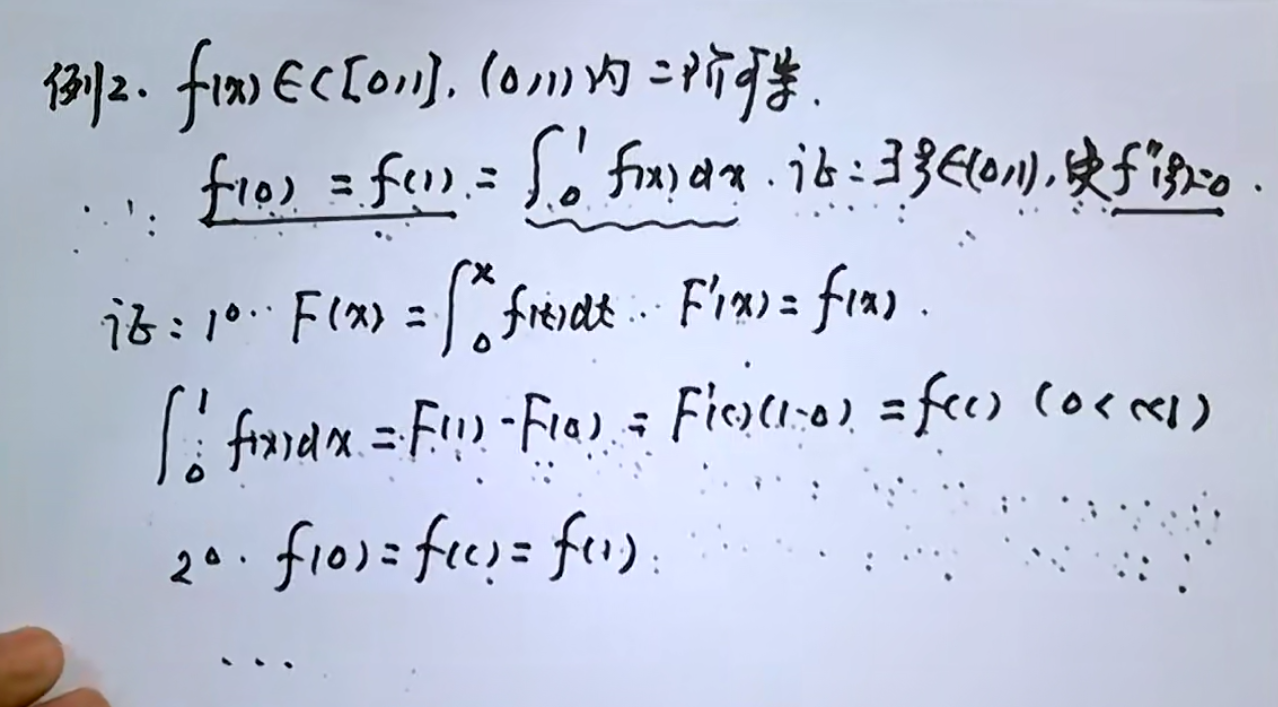 例2. f(x)∈C[0,1]. (0,1)内二阶可导.
f(0) = f(1) = ∫₀¹ f(x)dx. 证: ∃ξ∈(0,1), 使f''(ξ)=0.
证: 1°. F(x) = ∫₀ˣ f(t)dt. F'(x) = f(x).
∫₀¹ f(x)dx = F(1) - F(0) = F'(c)(1-0) = f(c) (0<c<1)
2°. f(0) = f(c) = f(1).
...